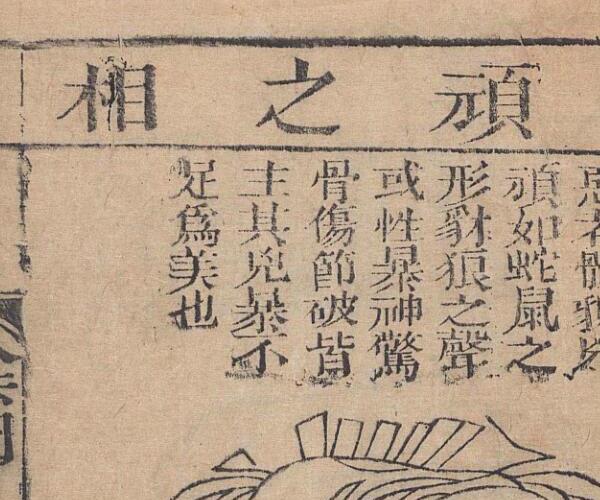 頑之相
惡者體貌
頑如蛇鼠之
形豺狼之聲
或性暴神驚
骨傷節破皆
主其兇暴不
足爲美也